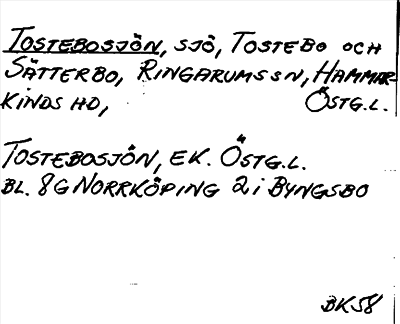 TOSTEBOSJÖN, SJÖ, TOSTEBO OCH
SÄTTERBO, RINGARUMS SN, HAMMAR-
KINDS HD, ÖSTG.L.
TOSTEBOSJÖN, EK. ÖSTG.L.
BL. 8G NORRKÖPING 2i BYNGSBO
BK58